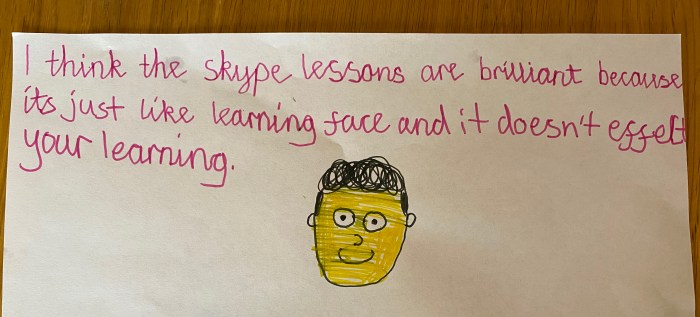 I think the skype lessons are brilliant because
its just like learning face and it doesn't effect
your learning.